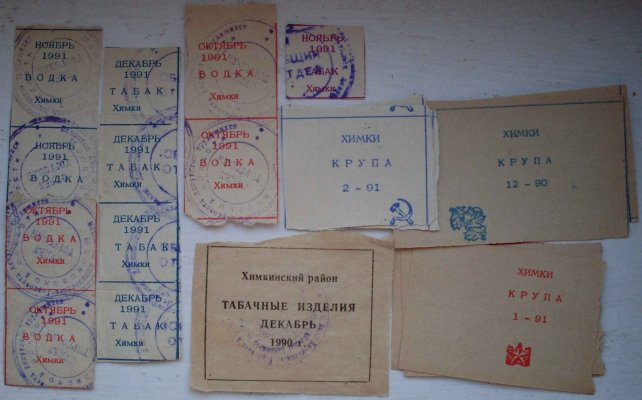 НОЯБРЬ
1991
ВОДКА
Химки
НОЯБРЬ
1991
ВОДКА
Химки
ОКТЯБРЬ
1991
ВОДКА
Химки
ОКТЯБРЬ
1991
ВОДКА
Химки
ДЕКАБРЬ
1991
ТАБАК
Химки
ДЕКАБРЬ
1991
ТАБАК
Химки
ДЕКАБРЬ
1991
ТАБАК
Химки
ДЕКАБРЬ
1991
ТАБАК
Химки
ОКТЯБРЬ
1991
ВОДКА
Химки
ОКТЯБРЬ
1991
ВОДКА
Химки
НОЯБРЬ
1991
ТАБАК
Химки
ХИМКИ
КРУПА
2-91
ХИМКИ
КРУПА
12-90
Химкинский район
ТАБАЧНЫЕ ИЗДЕЛИЯ
ДЕКАБРЬ
1990 г.
ХИМКИ
КРУПА
1-91